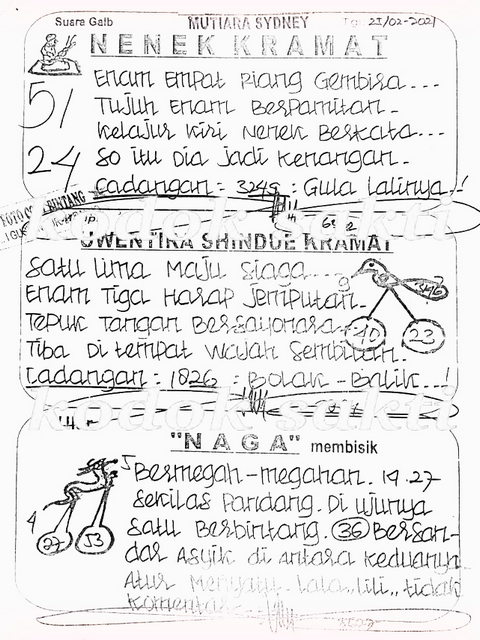 Suara Gaib MUTIARA SYDNEY Tgl 25/02-2021
NENEK KRAMAT
Enam Empat Riang Gembira...
51 Tujuh Enam Berpamitan-
Kelajur Kiri Nenek Berkata...
24 So itu Dia Jadi Kenangan-
Cadangan = 3249 : Gula Lalinya..!
kodok sakti
UWENTIRA SHINDUE KRAMAT
Satu Lima Maju Siaga...
Enam Tiga Harap Jemputan-
Tepuk Tangan Bersayonara-
Tiba Di tempat Wajah Sembilan-
Cadangan = 1826 : Bolak-Balik...!
9
40 23
kodok sakti
"NAGA" membisik
5 Bermegah-megahan. 19.27
Sekilas Pandang. Di ujunya
4 Satu Berbintang. 36 Bersan-
27 53 dar Asyik di Antara Keduanya
Atur Menyanyi Lala,, lili,, tidak
Komentar